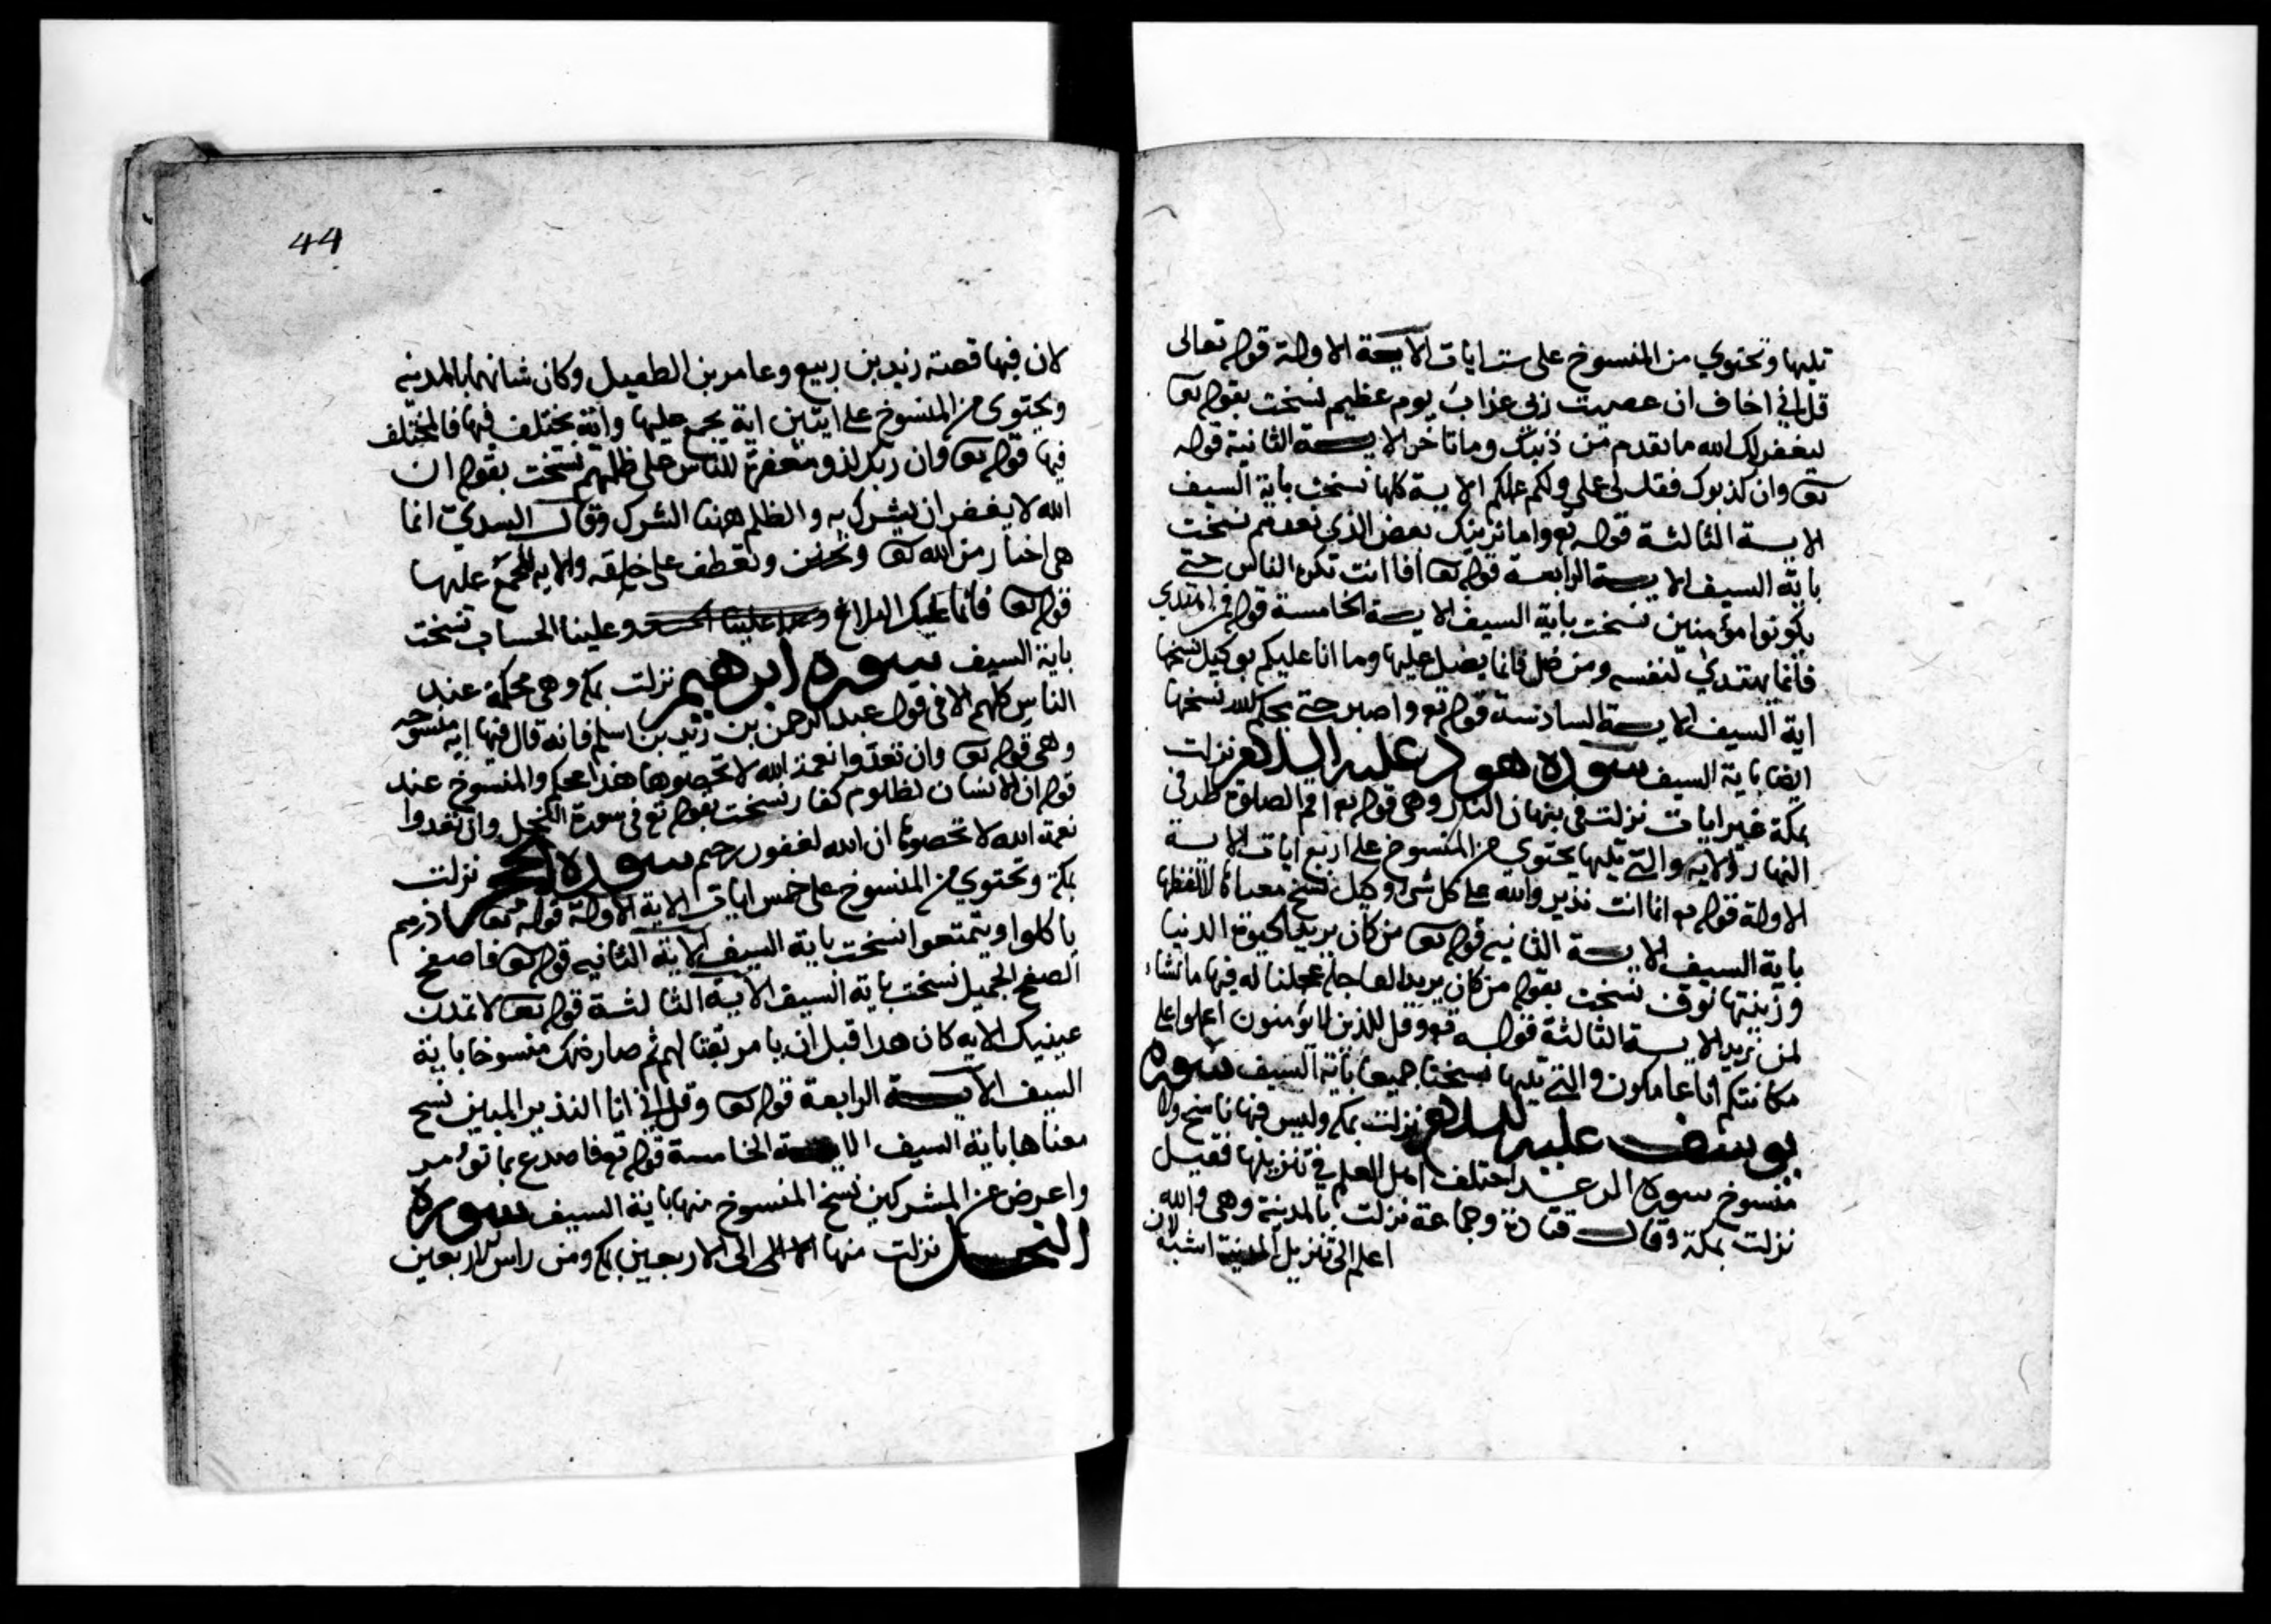 تليها وتحتوي من المنسوخ على ست ايات الاية الاولة قوله تعالى
قل اني اخاف ان عصيت ربي عذاب يوم عظيم نسخت بقوله تعا
ليغفر لك الله ما تقدم من ذنبك وما تاخر الاية الثانية قوله
تعا وان كذبوك فقل لي عملي ولكم عملكم الاية كلها نسخت باية السيف
الاية الثالثة قوله تع واما نرينك بعض الذي نعدهم نسخت
باية السيف الاية الرابعة قوله تعا افاانت تكره الناس حتى
يكونوا مؤمنين نسخت باية السيف الاية الخامسة قوله فمن اهتدي
فانما يهتدي لنفسه ومن ضل فانما يضل عليها وما انا عليكم بوكيل نسختها
اية السيف الاية السادسة قوله تع واصبر حتى يحكم الله نسخها
ايضا باية السيف سورة هود عليه السلام نزلت
بمكة غير ايات نزلت في بنهان التمار وهي قوله تع اقم الصلوة طرفي
النهار الاية والتي تليها يحتوي من المنسوخ على اربع ايات الاية
الاولة قوله تع انما انت نذير والله على كل شيء وكيل نسخ معناها لا لفظها
باية السيف الاية الثانية قوله تعا من كان يريد الحيوة الدنيا
وزينتها نوف نسخت بقوله من كان يريد العاجلة عجلنا له فيها ما نشاء
لمن نريد الاية الثالثة قوله تع وقل للذين لا يؤمنون اعملوا على
مكانتكم انا عاملون والتي تليها نسختا جميعا باية السيف سورة
يوسف عليه السلام نزلت بمكة وليس فيها ناسخ ولا
منسوخ سورة الرعد اختلف اهل العلم في تنزيلها فقيل
نزلت بمكة وقال قتادة وجماعة نزلت بالمدينة وهي والله
اعلم الى تنزيل المدينة اشبه لان
44
لان فيها قصة زيد بن ربيع وعامر بن الطفيل وكان شانهما بالمدينه
ويحتوى من المنسوخ على ايتين اية يجمع عليها واية يختلف فيها فالمختلف
فيها قوله تعا وان ربك لذو مغفرة للناس على ظلمهم نسخت بقوله ان
الله لا يغفر ان يشرك به والظلم ههنا الشرك وقال السدي انما
هى اخبار من الله تعا وتحنن وتعطف على خلقه والايه المجمع عليها
قوله تعا فانما عليك البلاغ وعلينا الحساب نسخت
باية السيف سورة ابرهيم نزلت بمكة وهى محكمة عند
الناس كلهم الا في قول عبد الرحمن بن زيد بن اسلم فانه قال فيها اية منسوخه
وهى قوله تعا وان تعدوا نعمة الله لا تحصوها هذا محكم والمنسوخ عند
قوله ان الانسان لظلوم كفار نسخت بقوله تع في سورة النحل وان تعدوا
نعمة الله لا تحصوها ان الله لغفور رحيم سورة الحجر نزلت
بمكة وتحتوي من المنسوخ على خمس ايات الاية الاولة قوله تعا ذرهم
ياكلوا ويتمتعوا نسخت باية السيف الاية الثانيه قوله تعا فاصفح
الصفح الجميل نسخت باية السيف الاية الثالثة قوله تعا لا تمدن
عينيك الايه كان هذا قبل ان يامر بقتالهم ثم صار ذلك منسوخا باية
السيف الاية الرابعة قوله تعا وقل اني انا النذير المبين نسخ
معناها باية السيف الاية الخامسة قوله تع فاصدع بما تؤمر
واعرض عن المشركين نسخ المنسوخ منها باية السيف سورة
النحل نزلت منها الى الاربعين بمكة ومن راس الاربعين